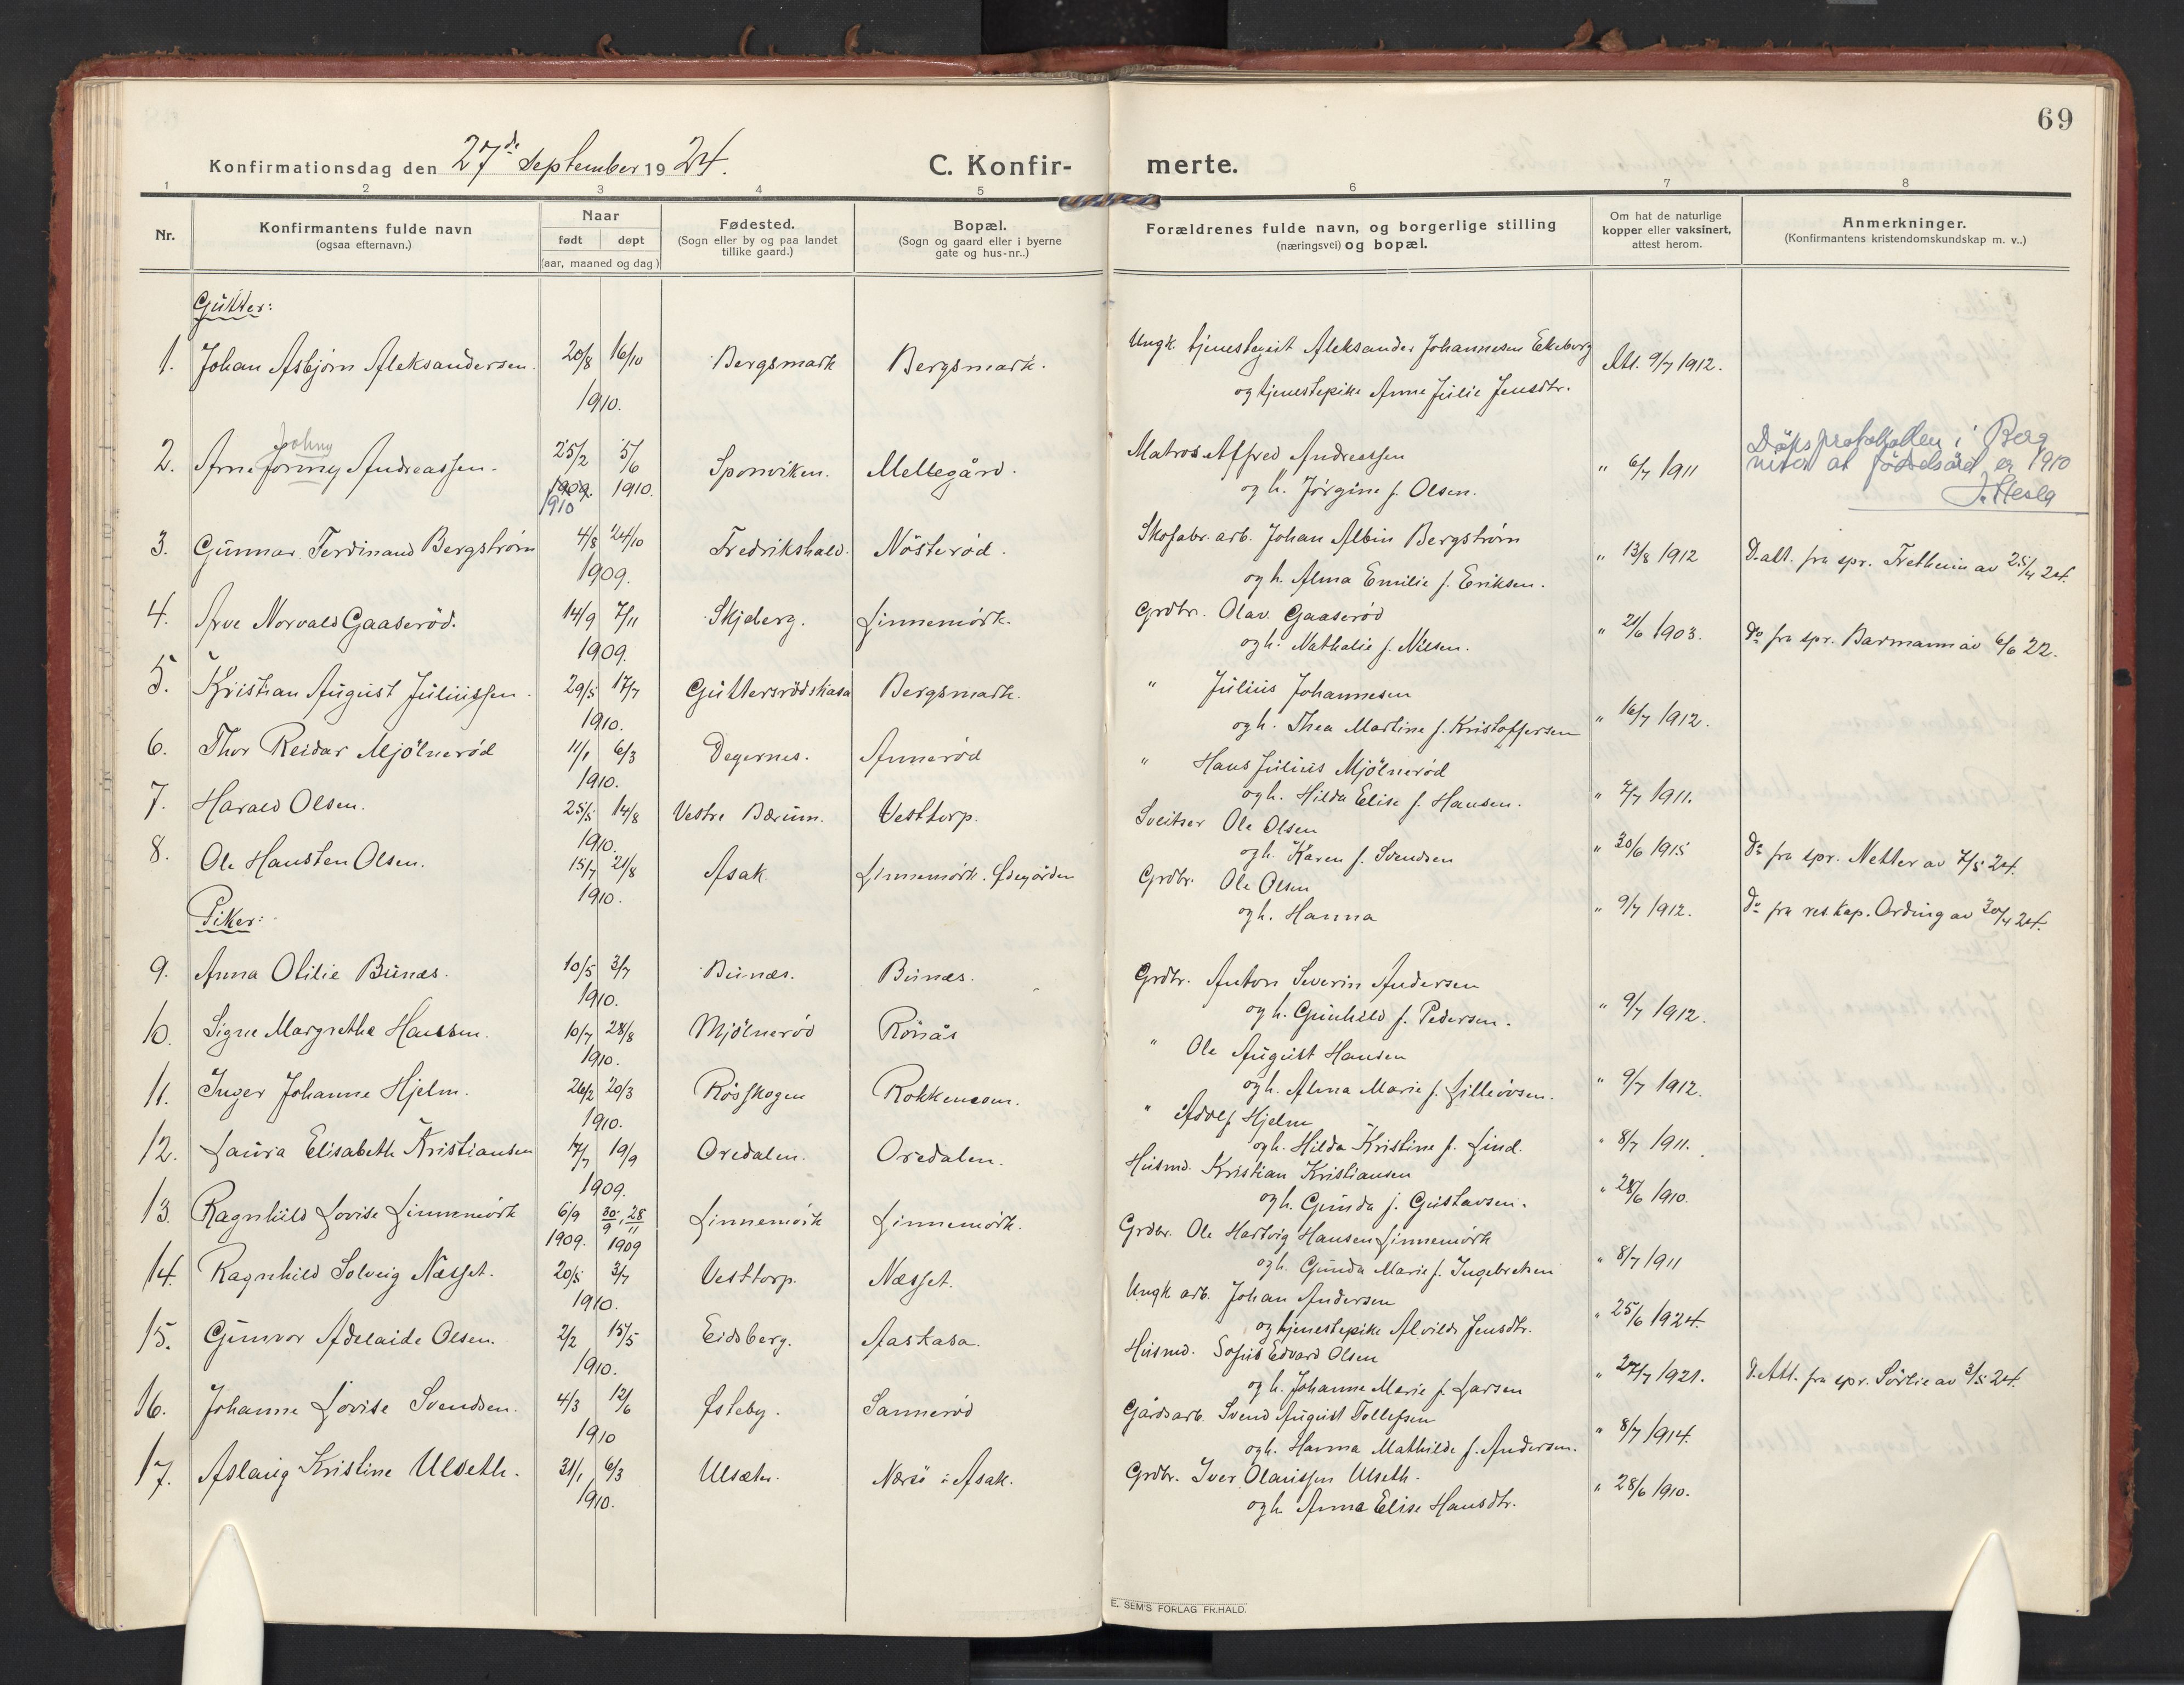 69
Konfirmationsdag den 27de September 1924.
C. Konfir-
merte.
1 2 3 4 5 6 7 8
Nr.
Konfirmantens fulde navn
(ogsaa efternavn.)
Naar
født døpt
(aar, maaned og dag)
Fødested.
(Sogn eller by og paa landet
tillike gaard.)
Bopæl.
(Sogn og gaard eller i byerne
gate og hus-nr..)
Forældrenes fulde navn, og borgerlige stilling
(næringsvei) og bopæl.
Om hat de naturlige
kopper eller vaksinert,
attest herom.
Anmerkninger.
(Konfirmantens kristendomskundskap m. v..)
Gutter:
1. Johan Asbjørn Aleksandersen. 20/8 16/10 Bergsmark Bergsmark. Ungk. tjenestegut Aleksander Johannesen Ekeberg Att. 9/7 1912.
1910. og tjenestepike Anna Julie Jensdtr.
Johny
2. Arne Jonny Andreassen. 25/2 5/6 Sponviken. Mellegård. Matros Alfred Andreassen " 6/7 1911 Dåpsprotokollen i Berg
1909. 1910. og h. Jørgine f. Olsen. viser at fødselsåret er 1910
1910 J. Hesla
3. Gunnar Ferdinand Bergstrøm 4/8 24/10 Fredrikshald. Nøsterød. Skofabr. arb. Johan Albin Bergstrøm " 13/8 1912 D.att. fra spr. Tretheim av 25/4 24.
1909. og h. Alma Emilie f. Eriksen.
4. Arve Norvald Gaaserød. 14/9 7/11 Skjeberg. Linnemørk. Grdbr. Olav Gaaserød " 21/6 1903. Do fra spr. Barmann av 6/6 22.
1909. og h. Nathalie f. Nilsen.
5. Kristian August Juliussen. 29/5 17/7 Guttersrødskasa Bergsmark. " Julius Johannesen " 16/7 1912.
1910. og h. Thea Martine f. Kristoffersen
6. Thor Reidar Mjølnerød 11/1 6/3 Degernes. Annerød " Hans Julius Mjølnerød " 7/7 1911.
1910. og h. Hilda Elise f. Hansen.
7. Harald Olsen. 25/5 14/8 Vestre Bærum. Vesttorp. Sveitser Ole Olsen " 30/6 1915 Do fra spr. Netter av 7/5 24.
1910. og h. Karen f. Svendsen
8. Ole Hansten Olsen. 15/7 21/8 Asak. Linnemørk. Ødegården Grdbr. Ole Olsen " 9/7 1912. Do fra res. kap. Ording av 30/4 24.
1910. og h. Hanna
Piker:
9. Anna Otilie Bunæs. 10/5 3/7 Bunæs. Bunæs. Grdbr. Anton Severin Andersen " 9/7 1912.
1910. og h. Gunhild f. Pedersen.
10. Signe Margrethe Hansen. 10/7 28/8 Mjølnerød Rønås " Ole August Hansen " 9/7 1912.
1910. og h. Alma Marie f. Lilleøvsen.
11. Inger Johanne Hjelm. 26/2 20/3 Røsskogen Rokkensom. " Adolf Hjelm " 8/7 1911.
1910. og h. Hilda Kristine f. Lind.
12. Laura Elisabeth Kristiansen 17/7 19/9 Oredalen. Oredalen. Husmd. Kristian Kristiansen " 28/6 1910.
1909. og h. Gunda f. Gustavsen.
13. Ragnhild Lovise Linnemørk 6/9 30/9, 28/11 Linnemørk Linnemørk. Grdbr. Ole Hartvig Hansen Linnemørk " 8/7 1911
1909. 1909 og h. Gunda Marie f. Ingebretsen
14. Ragnhild Solveig Næsset. 20/5 3/7 Vesttorp. Næsset. Ungk. arb. Johan Andersen " 25/6 1924.
1910. og tjenestepike Alvilde Jensdtr.
15. Gunvor Adelaide Olsen. 2/2 15/5 Eidsberg. Aaskasa. Husmd. Sofus Edvard Olsen " 27/7 1921. D.Att. fra spr. Sørlie av 3/5 24.
1910. og h. Johanne Marie f. Larsen
16. Johanne Lovise Svendsen. 4/3 12/6 Østeby. Sannerød Gårdsarb. Svend August Tollefsen " 8/7 1914.
1910 og h. Hanna Mathilde f. Andersen.
17. Aslaug Kristine Ulseth. 31/1 6/3 Ulsæter. Norsø i Asak. Grdbr. Iver Olaussen Ulseth. " 28/6 1910.
1910. og h. Anna Elise Hansdtr.
E. SEM'S FORLAG FR.HALD.